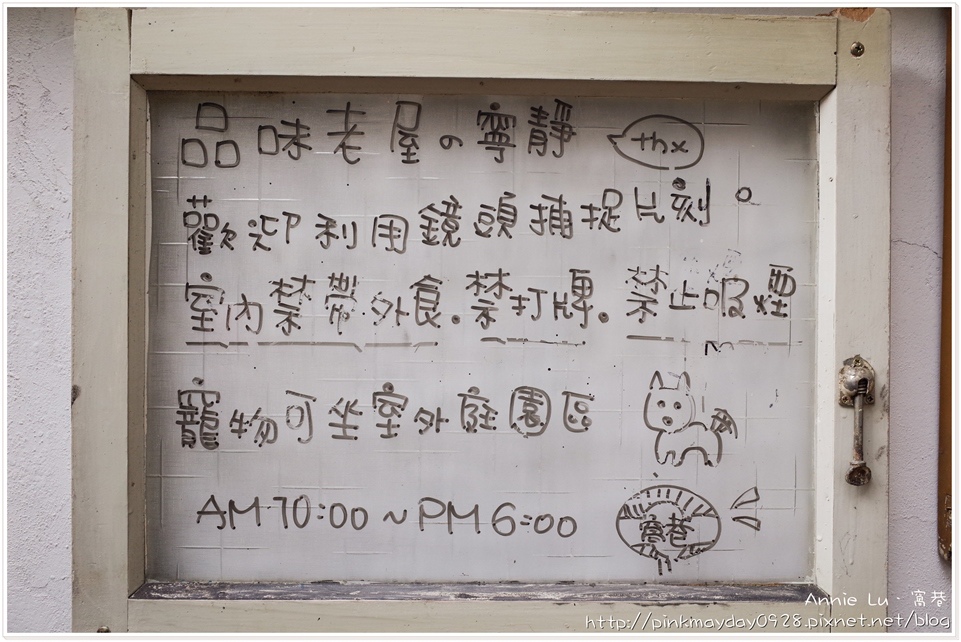 品味老屋の寧靜 thx
歡迎利用鏡頭捕捉片刻。
室內禁帶外食.禁打牌.禁止吸煙
寵物可坐室外庭園區
AM 10:00 ~ PM 6:00
窩巷
Annie Lu · 窩巷
http://pinkmayday0928.pixnet.net/blog